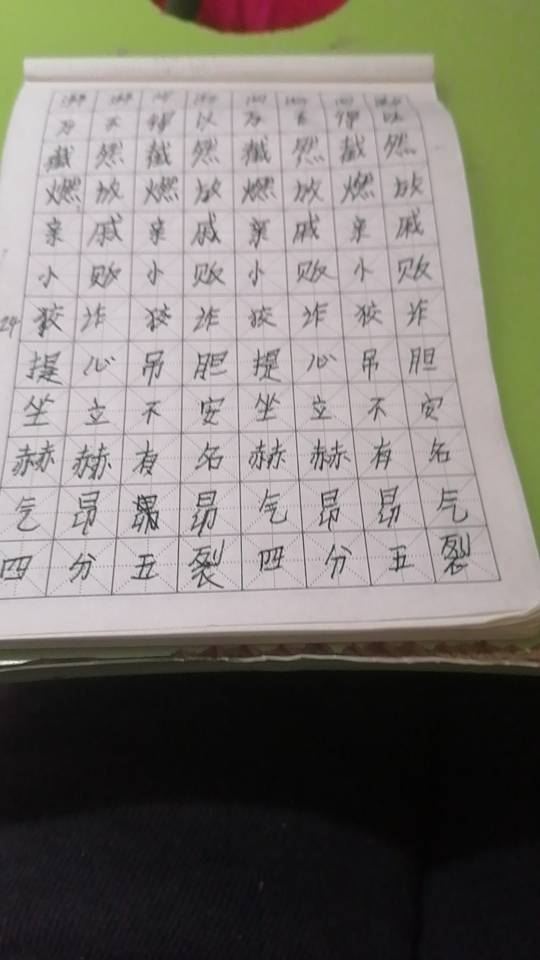 万不得以万不得以
截然截然截然截然
燃放燃放燃放燃放
亲戚亲戚亲戚亲戚
小败小败小败小败
29 狡诈狡诈狡诈狡诈
提心吊胆提心吊胆
坐立不安坐立不安
赫赫有名赫赫有名
气昂昂气昂昂气
四分五裂四分五裂